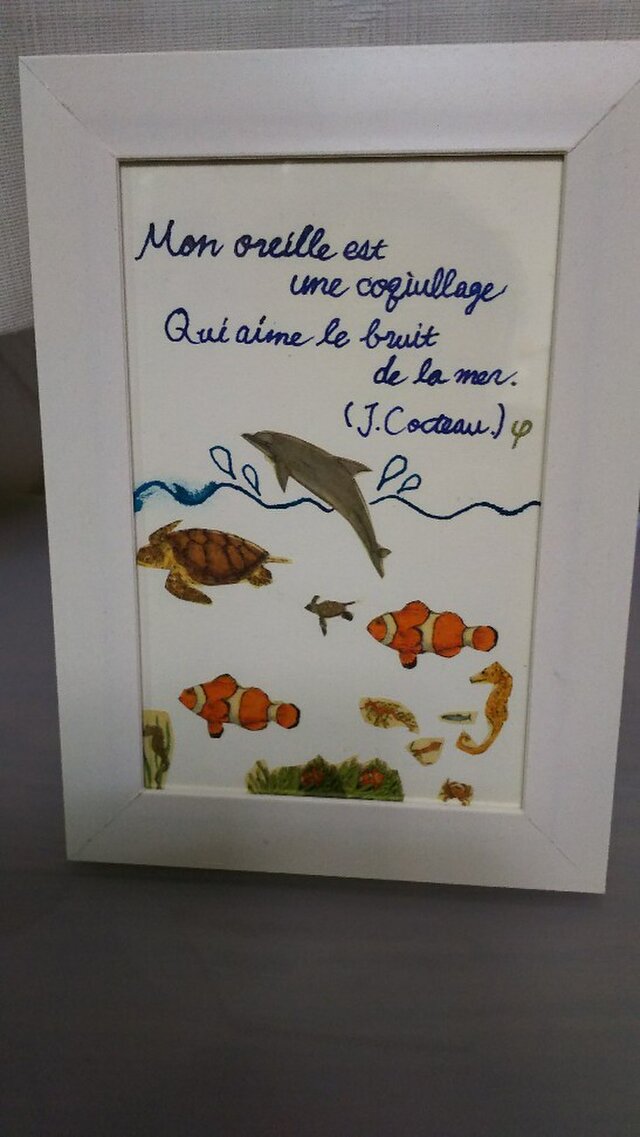 Mon oreille est
une coqiullage
Qui aime le bruit
de la mer.
(J. Cocteau.) φ